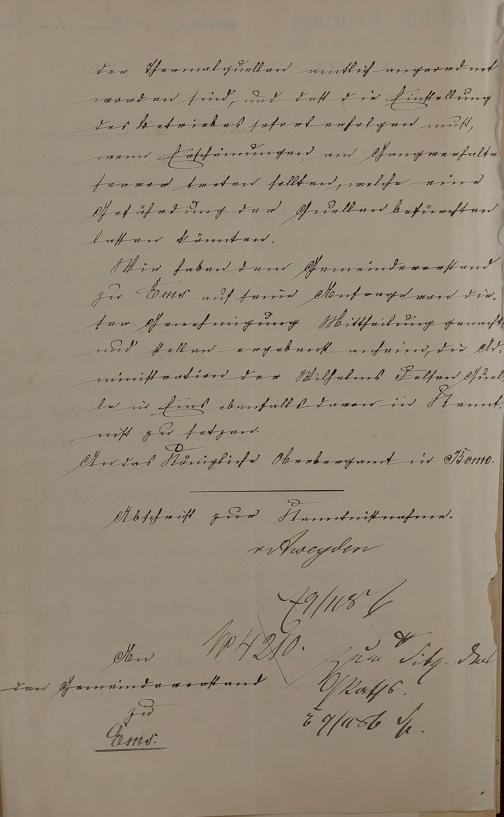 der Thermalquellen amtlich angeordnet
worden sind, und daß die Einstellung
des Betriebes sofort erfolgen muß,
wenn Erscheinungen am Gangverhalte
hervor treten sollten, welche eine
Gefährdung der Quellen befürchten
lassen könnten.
Wir haben dem Gemeindevorstand
zu Ems auf seine Anfrage von die-
ser Genehmigung Mittheilung gemacht
und stellen ergebenst anheim, die Ad-
ministration der Wilhelms Felsen Quel-
le in Ems ebenfalls davon in Kennt-
niß zu setzen.
An das Königliche Oberbergamt in Bonn.
Abschrift zur Kenntnißnahme.
An
den Gemeindevorstand
zu
Ems.
No 4210.
zur Sitz. des